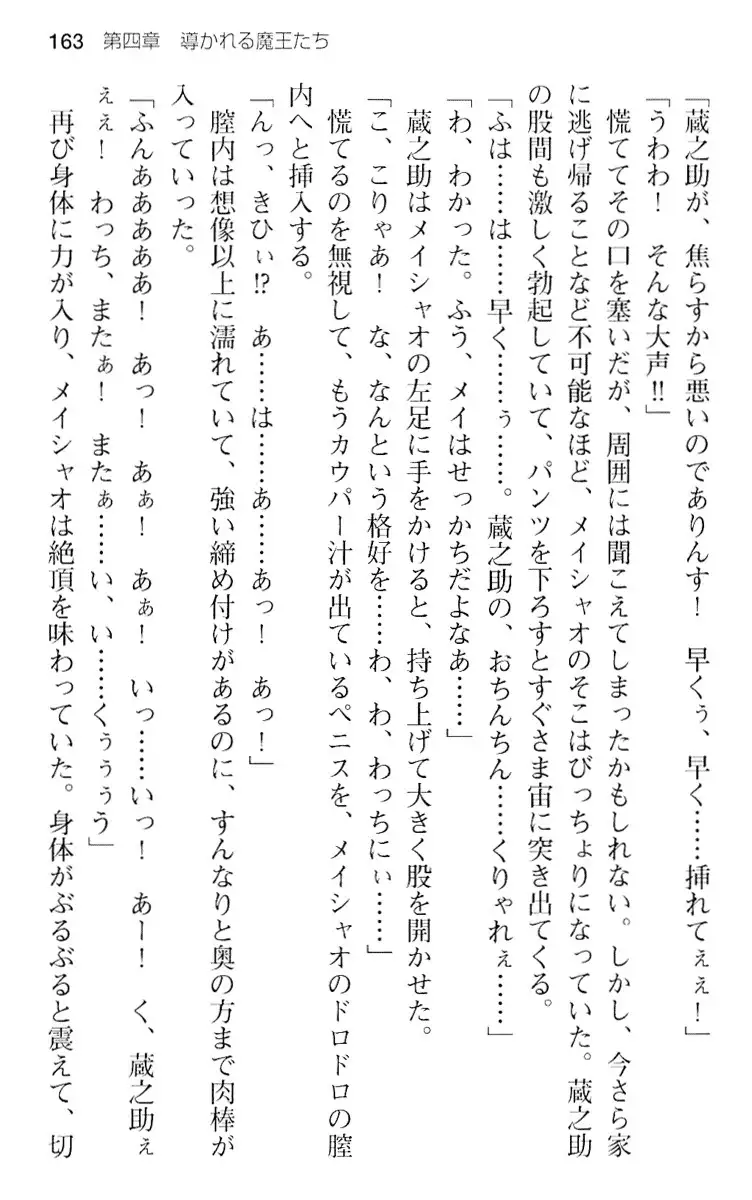 163 第四章 導かれる魔王たち
「蔵之助が、焦らすから悪いのでありんす! 早くぅ、早く……挿れてぇぇ!」
「うわわ! そんな大声!!」
慌ててその口を塞いだが、周囲には聞こえてしまったかもしれない。しかし、今さら家
に逃げ帰ることなど不可能なほど、メイシャオのそこはびっちょりになっていた。蔵之助
の股間も激しく勃起していて、パンツを下ろすとすぐさま宙に突き出てくる。
「ふは……は……早く……ぅ……。蔵之助の、おちんちん……くりゃれぇ……」
「わ、わかった。ふう、メイはせっかちだよなぁ……」
蔵之助はメイシャオの左足に手をかけると、持ち上げて大きく股を開かせた。
「こ、こりゃあ! な、なんという格好を……わ、わ、わっちにぃ……」
慌てるのを無視して、もうカウパー汁が出ているペニスを、メイシャオのドロドロの膣
内へと挿入する。
「んっ、きひぃ!? あ……は……あ……あっ! あっ!」
膣内は想像以上に濡れていて、強い締め付けがあるのに、すんなりと奥の方まで肉棒が
入っていった。
「ふんああああぁ! あっ! あぁ! あぁ! いっ……いっ! あー! く、蔵之助ぇ
ぇぇ! わっち、またぁ! またぁ……い、い……くぅぅぅう」
再び身体に力が入り、メイシャオは絶頂を味わっていた。身体がぶるぶると震えて、切